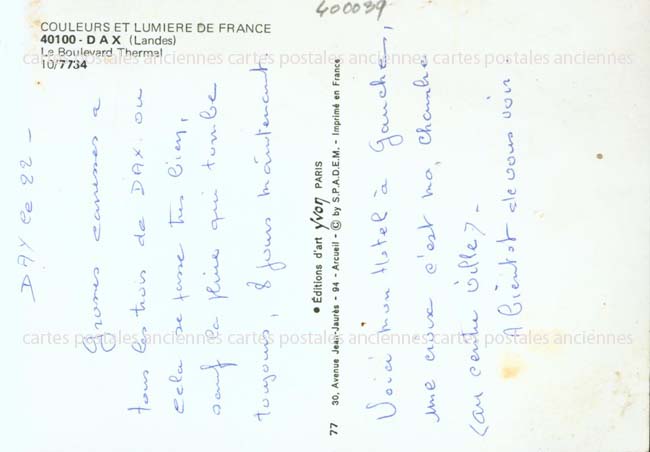 400039
COULEURS ET LUMIERE DE FRANCE
40100 - DAX (Landes)
Le Boulevard Thermal
10/7734
cartes postales anciennes cartes postales anciennes cartes postales anciennes
DAX le 22 -
Grosses caresses à
tous les trois de DAX. ou
cela se passe très bien,
sauf la pluie qui tombe
toujours, 8 jours maintenant.
● Éditions d'art yvon PARIS
77 30, Avenue Jean-Jaurès - 94 - Arcueil - © by S.P.A.D.E.M. - Imprimé en France
Voici mon Hotel à Gauche,
une croix c'est ma, chambre
(au centre ville) -
A bientôt de vous voir
cartes postales anciennes cartes postales anciennes cartes postales anciennes